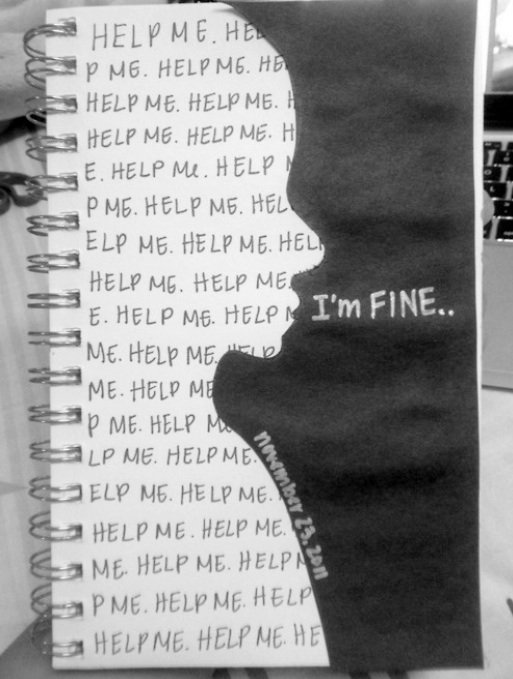 HELP ME. HE
P ME. HELP ME. HE
HELP ME. HELP ME. H
HELP ME. HELP ME. H
E. HELP Me. HELP M
P ME. HELP ME. HEL
ELP ME. HELP ME. HELP
HELP ME. HELP ME.
E. HELP ME. HELP M
I'm FINE..
ME. HELP ME. HELP
ME. HELP ME
P ME. HELP M
LP ME. HELP ME.
ELP ME. HELP ME.
HELP ME. HELP ME.
ME. HELP ME. HELP M
P ME. HELP ME. HELP
HELP ME. HELP ME. HE
november 23, 2011